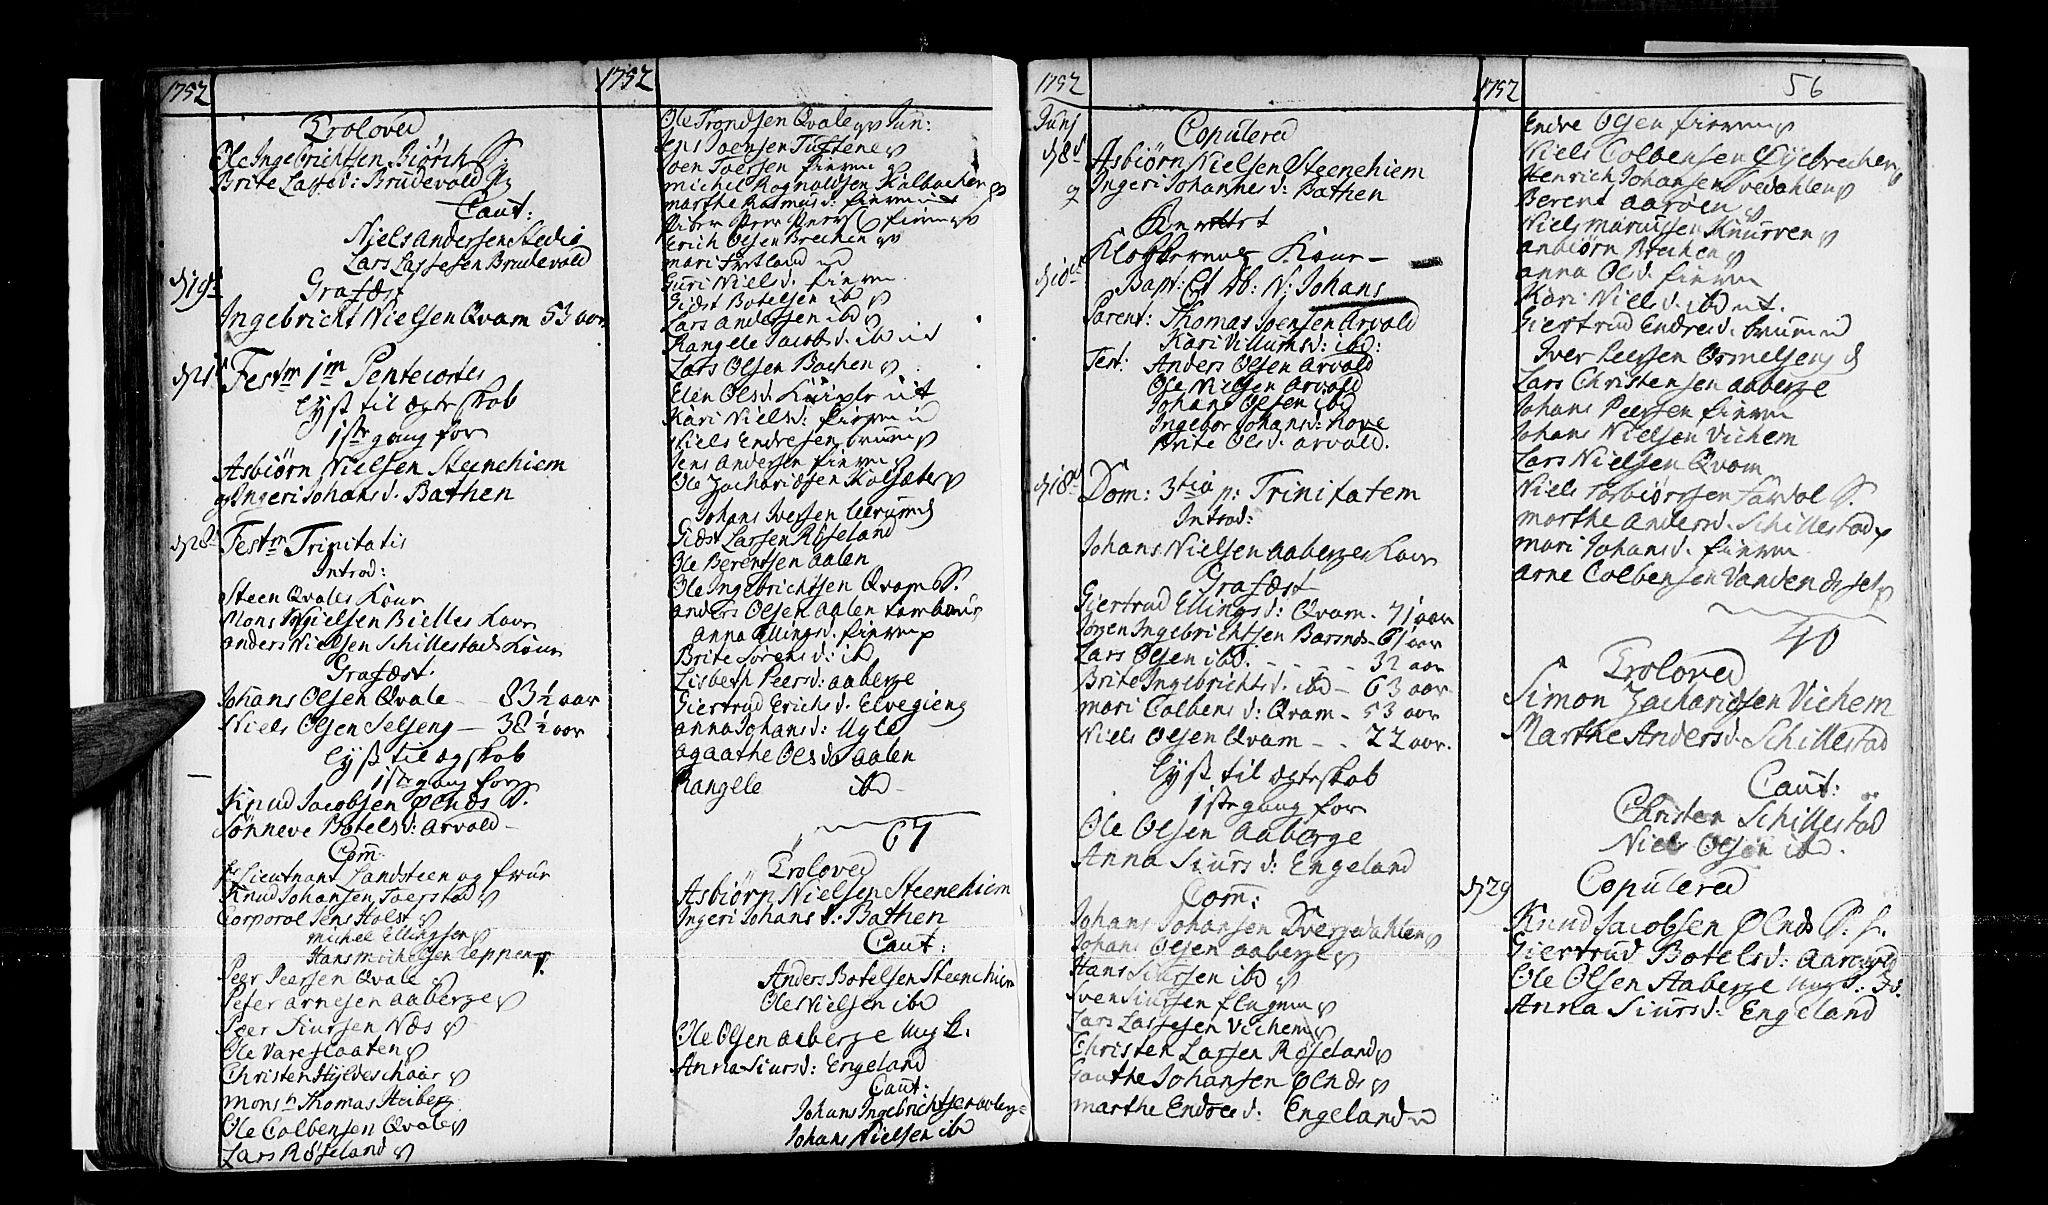 1752
Troloved
Ole Ingebrichtsen Biørch S:
Brite Lassed: Brudevold Pg
Caut:
Niels Andersen Stedie
Lars Lassesen Brudevold
d 19de
Grafæst
Ingebricht Nielsen Qvam 53 aar
d 21de Festm 1m Pentecostes
Lyst til Ægteskab
1ste gang for
Asbiørn Nielsen Steenehiem
og Ingeri Johansd. Bathen
d 28de Festm Trinitatis
Introd:
Steen Qvales Kone
Mons Nielsen Bielles Kone
Anders Nielsen Schillestads Kone
Grafæst.
Johans Olsen Qvale - - 83 1/2 aar
Niels Olsen Selseng - 38 1/2 aar
Lyst til ægteskab
1ste gang for
Knud Jacobsen Ølnes S.
Sønneve Botelsd: Arvold -
Com:
Hr Lieutnant Landsteen og frue
Knud Johansen Taerstad
Corporal Jens Holst
Michel Ellingsen
Hans Michelsen Leppen
Peer Pearsen Qvale
Peter Arnesen Aaberge
Peer Siursen Næs
Ole Vareslaaten
Christen Hyldeschaar
Monsr Thomas Aaberg
Ole Colbensen Qvale
Lars Røseland
1752
Ole Trondsen Qvale Jun:
Jens Joensen Tuftene
Joen Joersen firem
Michel Rognaldsen Kalbachen
Marthe Rasmusd: firem
Peer firem
Erich Olsen Brechen
Mari Fretland
Guri Nielsd. firem
Giæst Botelsen ibd
Lars Andersen ibd
Rangele Jacobsd. ibd
Lars Olsen Bachen
Elen Olsd.
Kari Nielsd: firem
Niels Endresen brum
Jens Andersen firem
Ole Zachariæsen Kolsæter
Johans Iversen
Giæst Larsen Røseland
Ole Berentsen Aalen
Ole Ingebrichtsen Qvam S.
Anders Olsen Aalen tambour
Anna Ellingsd. firem
Brite Sørensd: ibd
Lisbeth Peersd: Aaberge
Giertrud Erichsd. Elvegieng
Anna Johansd: Ugle
Agaathe Olsd Aalen
Rangele ibd -
67
Troloved
Asbiørn Nielsen Steenehiem
Ingeri Johansd: Bathen
Caut:
Anders Botelsen Steenehiem
Ole Nielsen ibd
Ole Olsen Aaberge ung k.
Anna Siursd: Engeland
Caut:
Johans Ingebrichtsen Aaberge
Johans Nielsen ibd
1752
Junj
Copulered
d 8de Asbiørn Nielsen Steenehiem
og Ingeri Johannesd: Bathen
Klokkerens Kone -
d 10de
Bapt: N: Johans
Parent: Thomas Joensen Arvold
Kari Villumsd: ibd:
Test: Anders Olsen Arvold
Ole Nielsen Arvold
Johans Olsen ibd
Ingebor Johansd: hove
Brite Olsd. Arvold.
d 18de Dom: 3tia p: Trinitatem
Introd:
Johans Nielsen Aaberges Kone
Grafæst
Giertrud Ellingsd: Qvam - 71 aar
Joen Ingebrichtsen Barsnes 61 aar
Lars Olsen ibd. - - - - 32 aar
Brite Ingebrichtsd. ibd - 63 aar
Mari Colbensd: Qvam - 53 aar
Niels Olsen Qvam - - 22 aar.
Lyst til ægteskab
1ste gang for
Ole Olsen Aaberge
Anna Siursd: Engeland
Com:
Johans Johansen Dvergedahlen
Johans Olsen Aaberge
Hans Siursen ibd
Sven Siursen flugum
Lars Lassesen Vichem
Christen Larsen Røseland
Gauthe Johansen Ølnes
Marthe Endresd: Engeland
1752
56
Endre Olsen firem
Niels Colbensen Øyebrechen
Henrich Johansen Svedahlen
Berent Aarøen
Niels Knurven
Anbiørn Brechen
Anna Olsd. firem
Kari Nielsd. ibd
Giertrud Endresd. brum
Iver Peersen Ormelseng
Lars Christensen Aaberge
Johans Peersen firem
Johans Nielsen Vichem
Lars Nielsen Qvam
Niels Torbiørnsen S.
Marthe Andersd. Schillestad
Mari Johansd. firem
Arne Colbensen
40
Troloved
Simon Zachariæsen Vichem
Marthe Andersd. Schillestad
Caut:
Christen Schillestad
Niels Olsen ibd.
d 29 Copulered
Knud Jacobsen Ølnes S.
Giertrud Botelsd:
Ole Olsen Aaberge ung
Anna Siursd: Engeland